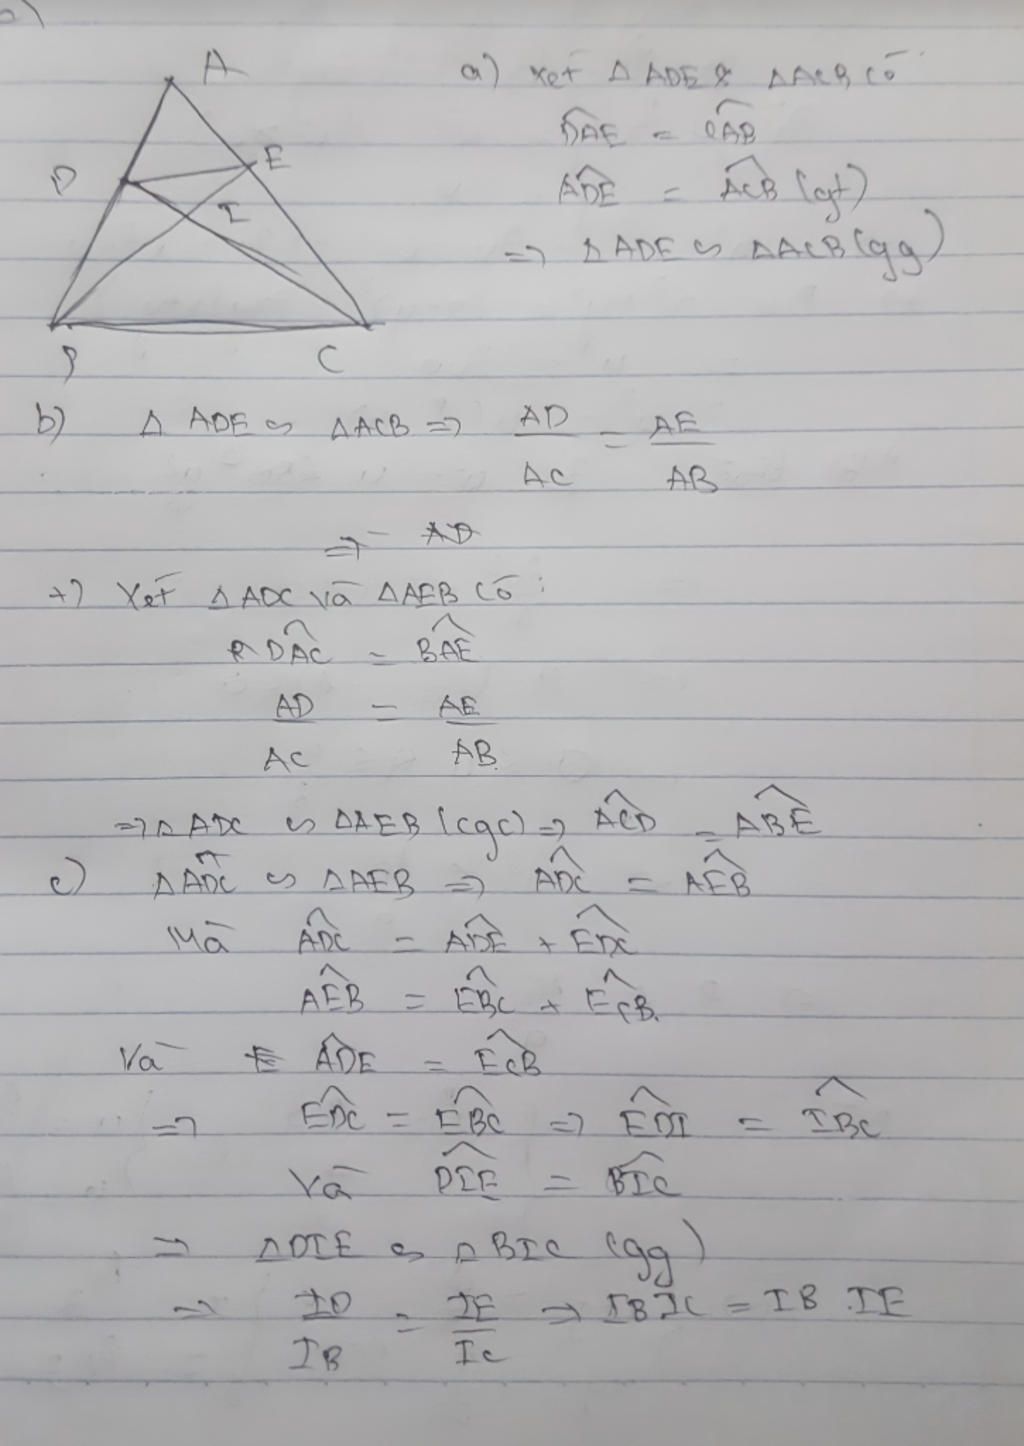 A
D
E
I
B
C
a) Xét Δ ADE & ΔACB có
DAE = CAB
ADE = ACB (gt)
=> Δ ADE ∽ ΔACB (gg)
b) Δ ADE ∽ ΔACB => AD/AC = AE/AB
=> AD
+) Xét ΔADC và ΔAEB có:
DAC = BAE
AD/AC = AE/AB
=> Δ ADC ∽ ΔAEB (cgc) => ACD = ABE
c) ΔADC ∽ ΔAEB => ADC = AEB
Mà ADC = ADE + EDC
AEB = EBC + ECB.
Và ADE = ECB
=> EDC = EBC => EDI = IBC
Và DIE = BIC
=> ΔDIE ∽ ΔBIC (gg)
=> ID/IB = IE/IC => IB IC = IB . IE